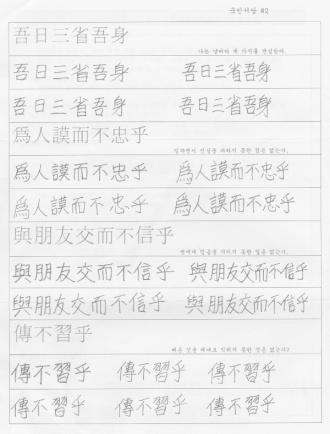 국민서당 #2
吾日三省吾身
나는 날마다 세 가지를 반성한다.
吾日三省吾身 吾日三省吾身
吾日三省吾身 吾日三省吾身
爲人謨而不忠乎
일하면서 진심을 다하지 못한 점은 없는가.
爲人謨而不忠乎 爲人謨而不忠乎
爲人謨而不忠乎 爲人謨而不忠乎
與朋友交而不信乎
벗에게 믿음을 지키지 못한 일은 없는가.
與朋友交而不信乎 與朋友交而不信乎
與朋友交而不信乎 與朋友交而不信乎
傳不習乎
배운 것을 제대로 익히지 못한 것은 없는가?
傳不習乎 傳不習乎 傳不習乎
傳不習乎 傳不習乎 傳不習乎